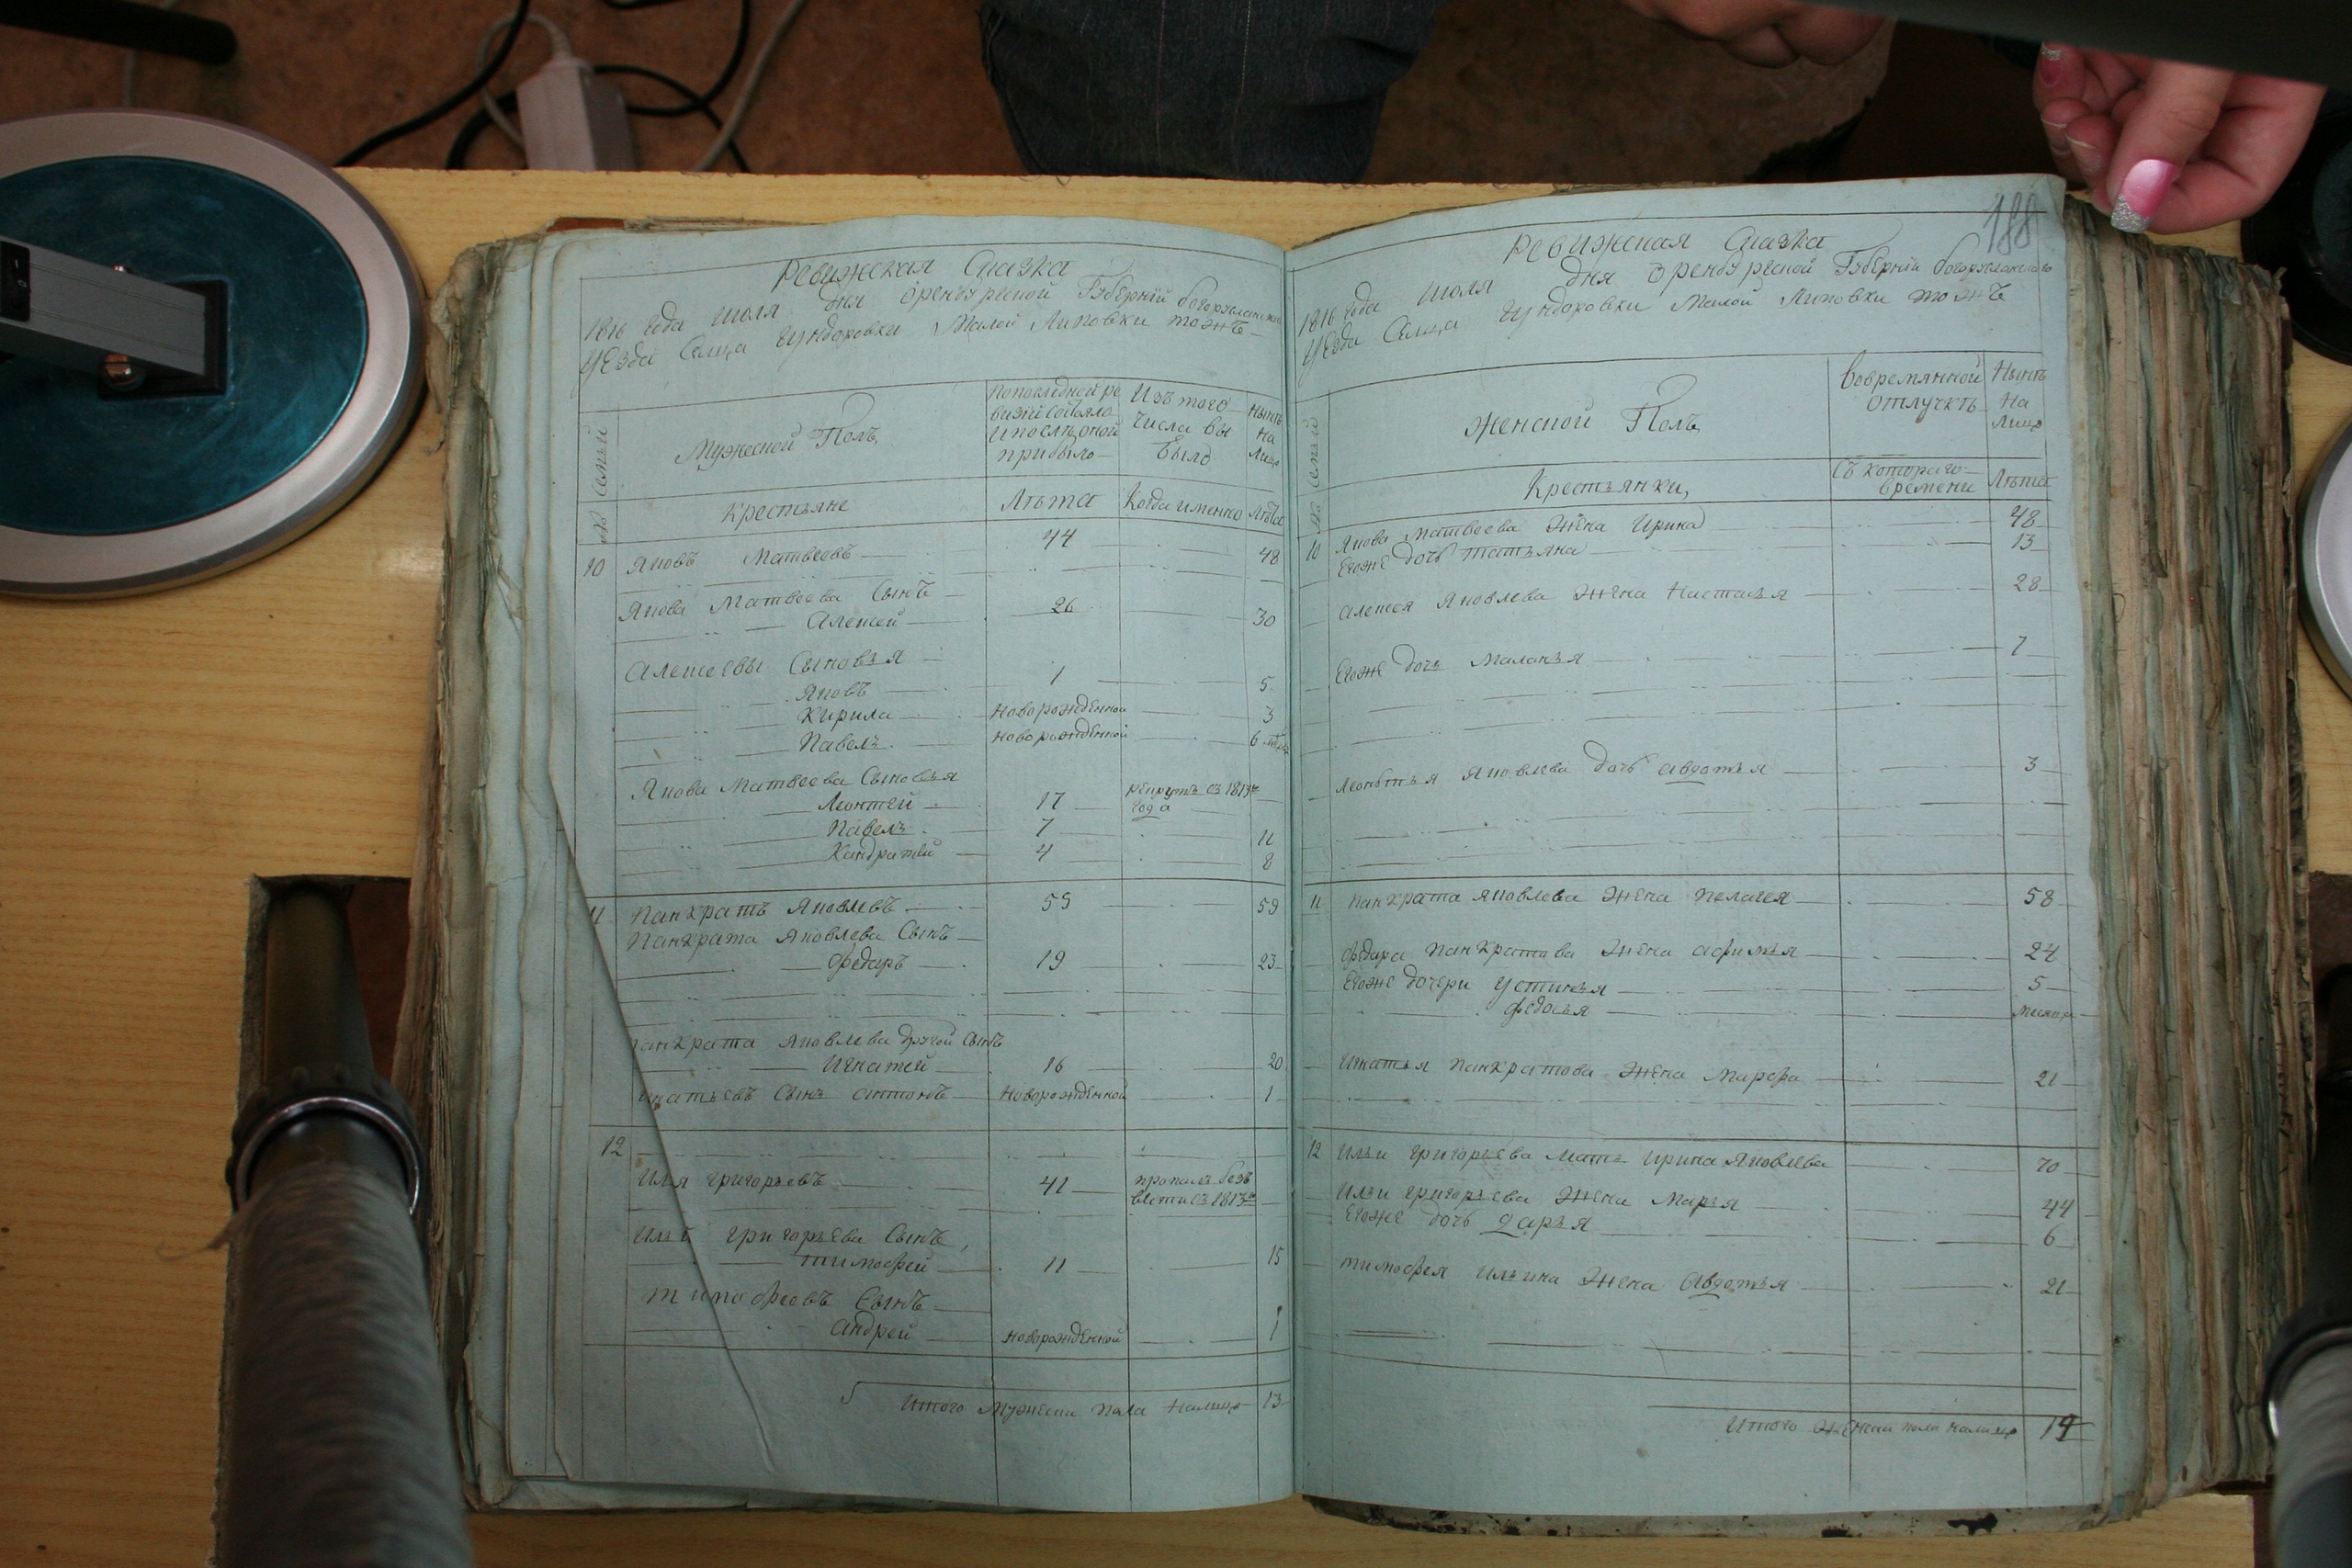 Ревижская Сказка
1816 года Июля дня Оренбургской Губернiи бугорусланскаго
Уезда Сельца Гундоровки Малой Липовки тожъ
№ Семьи
Мужеской Полъ
Попоследней ревизiи состояло и после оной прибыло
Изъ того числа выбыло
Ныне на Лицо
Крестьяне
Лѣта
Когда именно
Лѣта
10 Яковъ Матвеевъ 44 48
Якова Матвеева Сынъ
Алексей 26 30
Алексеевы Сыновья
Яковъ 1 5
Кирила Новорожденной 3
Павелъ новорожденной 6
Якова Матвеева Сыновья
Леонтей 17 рекрутъ съ 1813го года
Павелъ 7 11
Кандратей 4 8
11 Панкратъ Яковлевъ 55 59
Панкрата Яковлева Сынъ
Федаръ 19 23
Панкрата Яковлева другой Сынъ
Игнатей 16 20
Игнатьевъ Сынъ антонъ Новорожденной 1
12
Илья Григорьевъ 41 пропалъ безъ вести съ 1813го
Ильи Григорьева Сынъ,
тимофей 11 15
тимофеевъ Сынъ
андрей новорожденной 1
Итого мужеска пола Налицо 13
188
Ревижская Сказка
1816 года Июля дня Оренбургской Губернiи бугорусланскаго
Уезда Сельца Гундоровки Малой Липовки тожъ
№ Семьи
Женской Полъ
Вовремянной отлучкѣ
Нынѣ на Лицо
Крестьянки,
Съ котораго времени
Лѣта
10 Якова Матвеева Жена Ирина 48
Егоже дочь татьяна 13
алексея Яковлева Жена Настасья 28
Егоже дочь Маланья 7
Леонтья Яковлева дочь авдотья 3
11 Панкрата Яковлева Жена Пелагея 58
Федара Панкратова Жена афимья 24
Егоже дочери Устинья 5
Федосья
Игнатья Панкратова Жена Марфа 21
12 Ильи Григорьева Мать Ирина Яковлева 70
Ильи Григорьева Жена Марья 44
Егоже дочь дарья 6
тимофея Ильина Жена Авдотья 21
Итого женска пола налицо 14